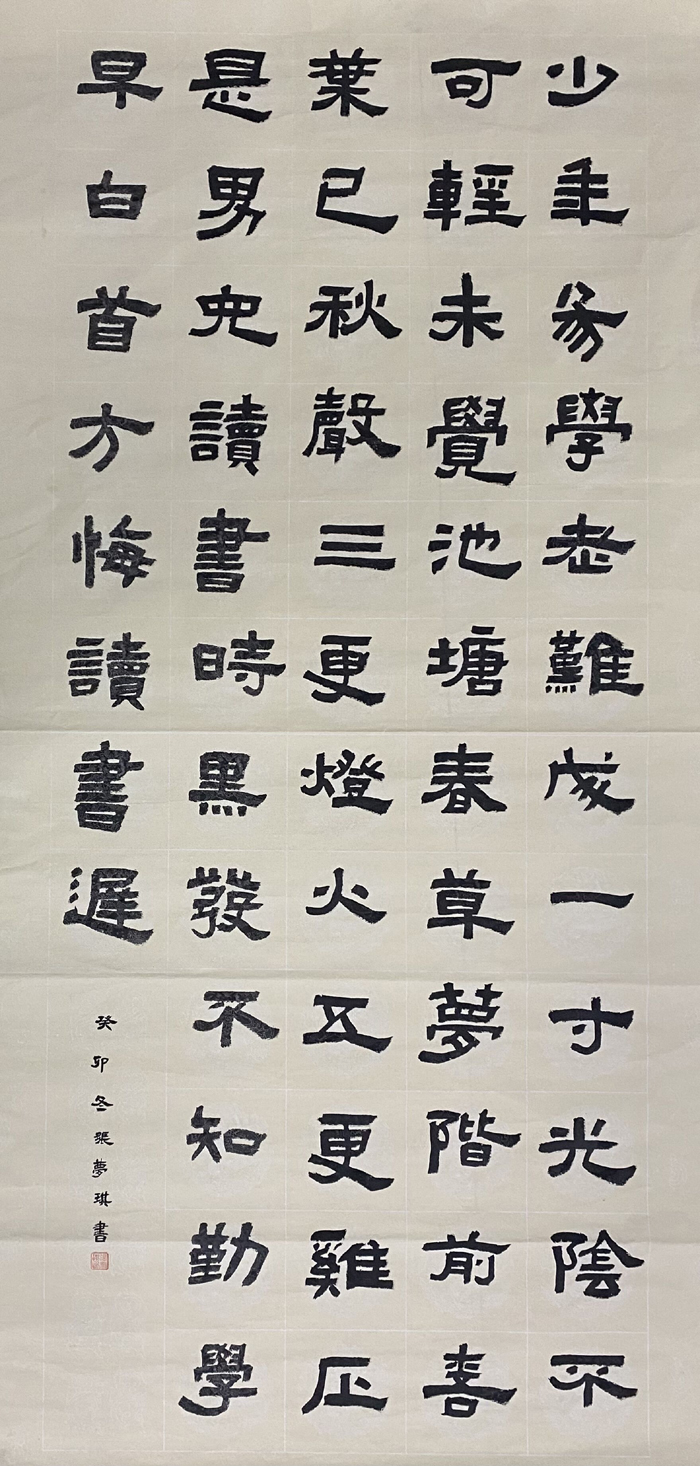 少年易學老難成一寸光陰不
可輕未覺池塘春草夢階前善
葉已秋聲三更燈火五更雞正
是男兒讀書時黑發不知勤學
早白首方悔讀書遲
癸卯冬張夢琪書